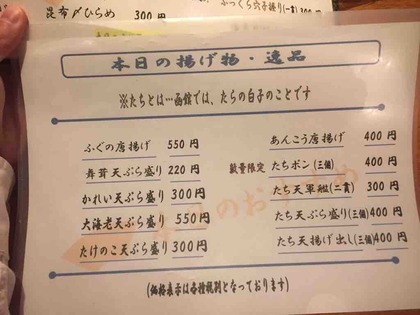 昆布〆ひらめ 300円
本日の揚げ物・逸品
※たちとは…函館では、たらの白子のことです
ふぐの唐揚げ 550円
舞茸天ぷら盛り 220円
かれい天ぷら盛り 300円
大海老天ぷら盛り 550円
たけのこ天ぷら盛り 300円
あんこう唐揚げ 400円
数量限定 たちポン(三個) 400円
たち天軍艦(二貫) 300円
たち天ぷら盛り(三個) 400円
たち天揚げ出し(三個) 400円
(価格表示は各種税別となっております)